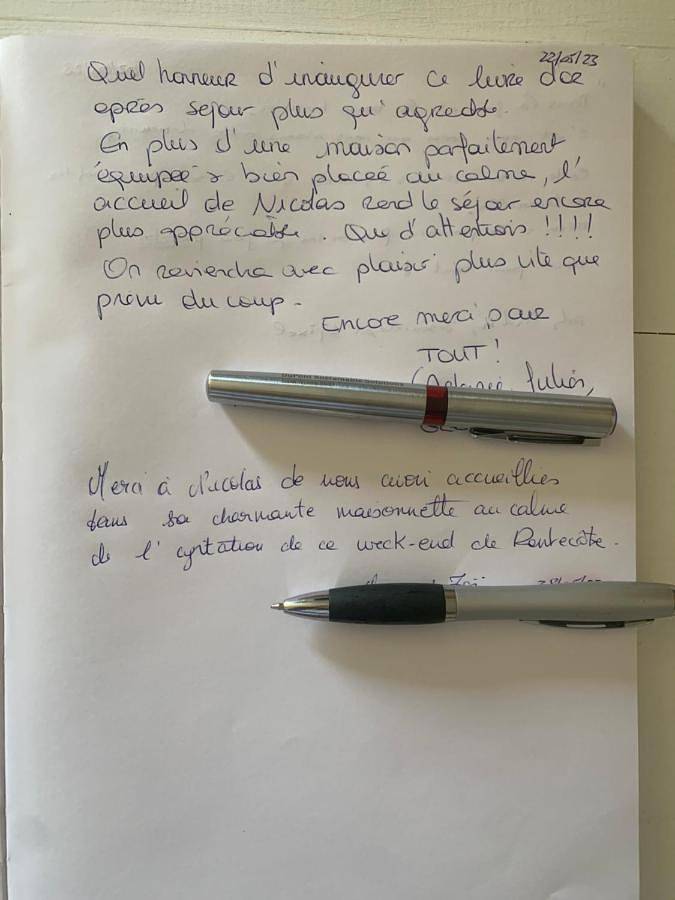 22/05/23
Quel honneur d'inaugurer ce livre d'or
après séjour plus qu'agréable.
En plus d'une maison parfaitement
équipée & bien placée au calme, l'
accueil de Nicolas rend le séjour encore
plus appréciable. Que d'attentions !!!!
On reviendra avec plaisir, plus vite que
prévu du coup.
Encore merci pour
TOUT !
Julien,
DuPont Sustainable Solutions
Merci à Nicolas de nous avoir accueillies
dans sa charmante maisonnette au calme
de l'agitation de ce week-end de Pentecôte.